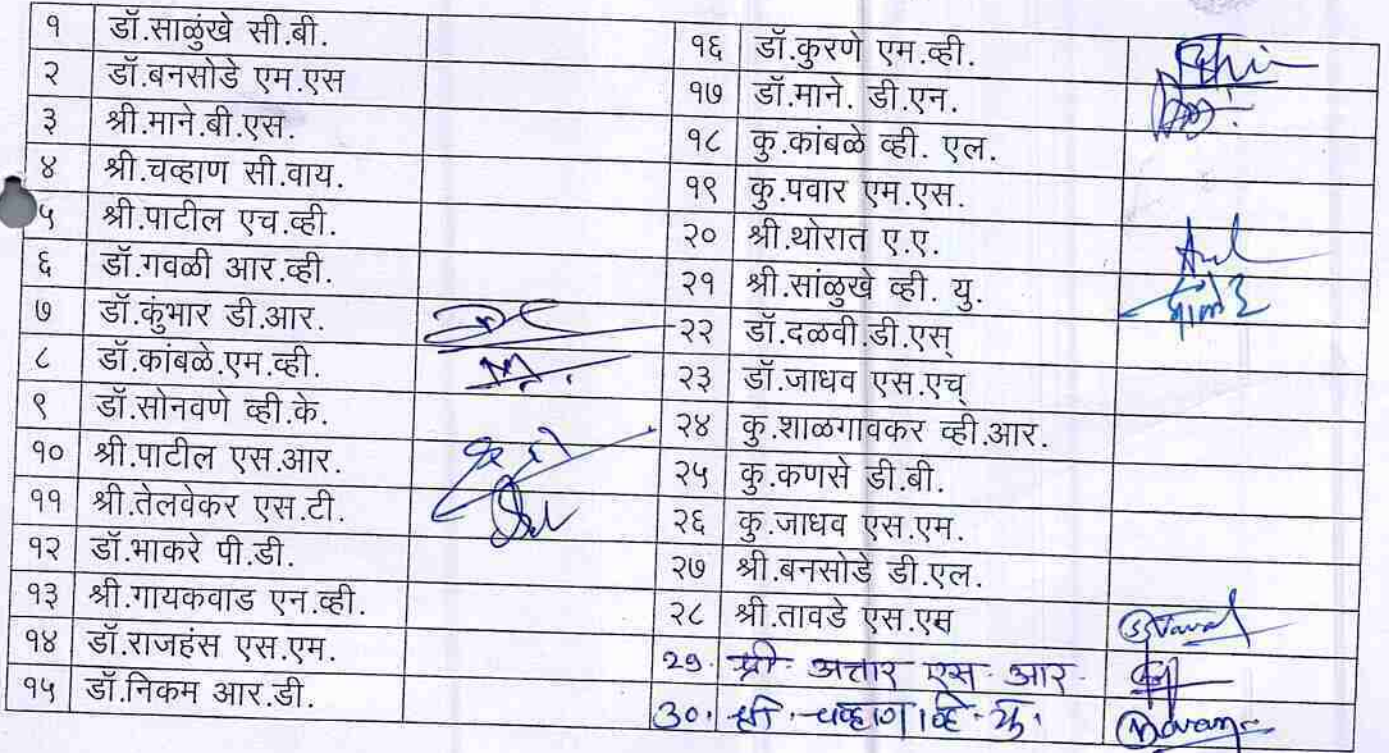 १ डॉ.साळुंखे सी.बी.
२ डॉ.बनसोडे एम.एस
३ श्री.माने.बी.एस.
४ श्री.चव्हाण सी.वाय.
५ श्री.पाटील एच.व्ही.
६ डॉ.गवळी आर.व्ही.
७ डॉ.कुंभार डी.आर.
८ डॉ.कांबळे.एम.व्ही.
९ डॉ.सोनवणे व्ही.के.
१० श्री.पाटील एस.आर.
११ श्री.तेलवेकर एस.टी.
१२ डॉ.भाकरे पी.डी.
१३ श्री.गायकवाड एन.व्ही.
१४ डॉ.राजहंस एस.एम.
१५ डॉ.निकम आर.डी.
१६ डॉ.कुरणे एम.व्ही.
१७ डॉ.माने. डी.एन.
१८ कु.कांबळे व्ही. एल.
१९ कु.पवार एम.एस.
२० श्री.थोरात ए.ए.
२१ श्री.सांळुखे व्ही. यु.
२२ डॉ.दळवी.डी.एस्
२३ डॉ.जाधव एस.एच्
२४ कु.शाळगांवकर व्ही.आर.
२५ कु.कणसे डी.बी.
२६ कु.जाधव एस.एम.
२७ श्री.बनसोडे डी.एल.
२८ श्री.तावडे एस.एम
29. श्री. अत्तार एस. आर.
30. श्री. चव्हाण व्हि. यु.